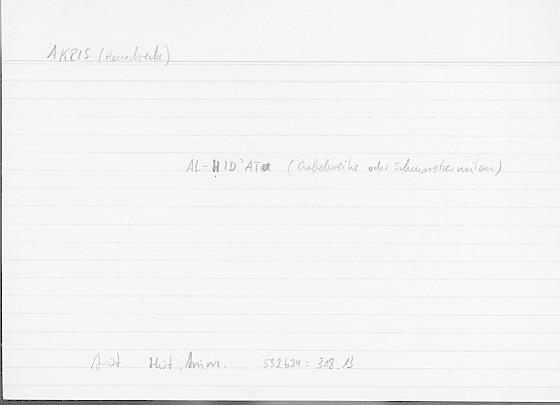 AKRIS (Heuschrecke)
AL-ḤID'AT (Gabelweihe oder Schmarotzermilan)
Arist Hist. Anim. 532b24 : 318.13